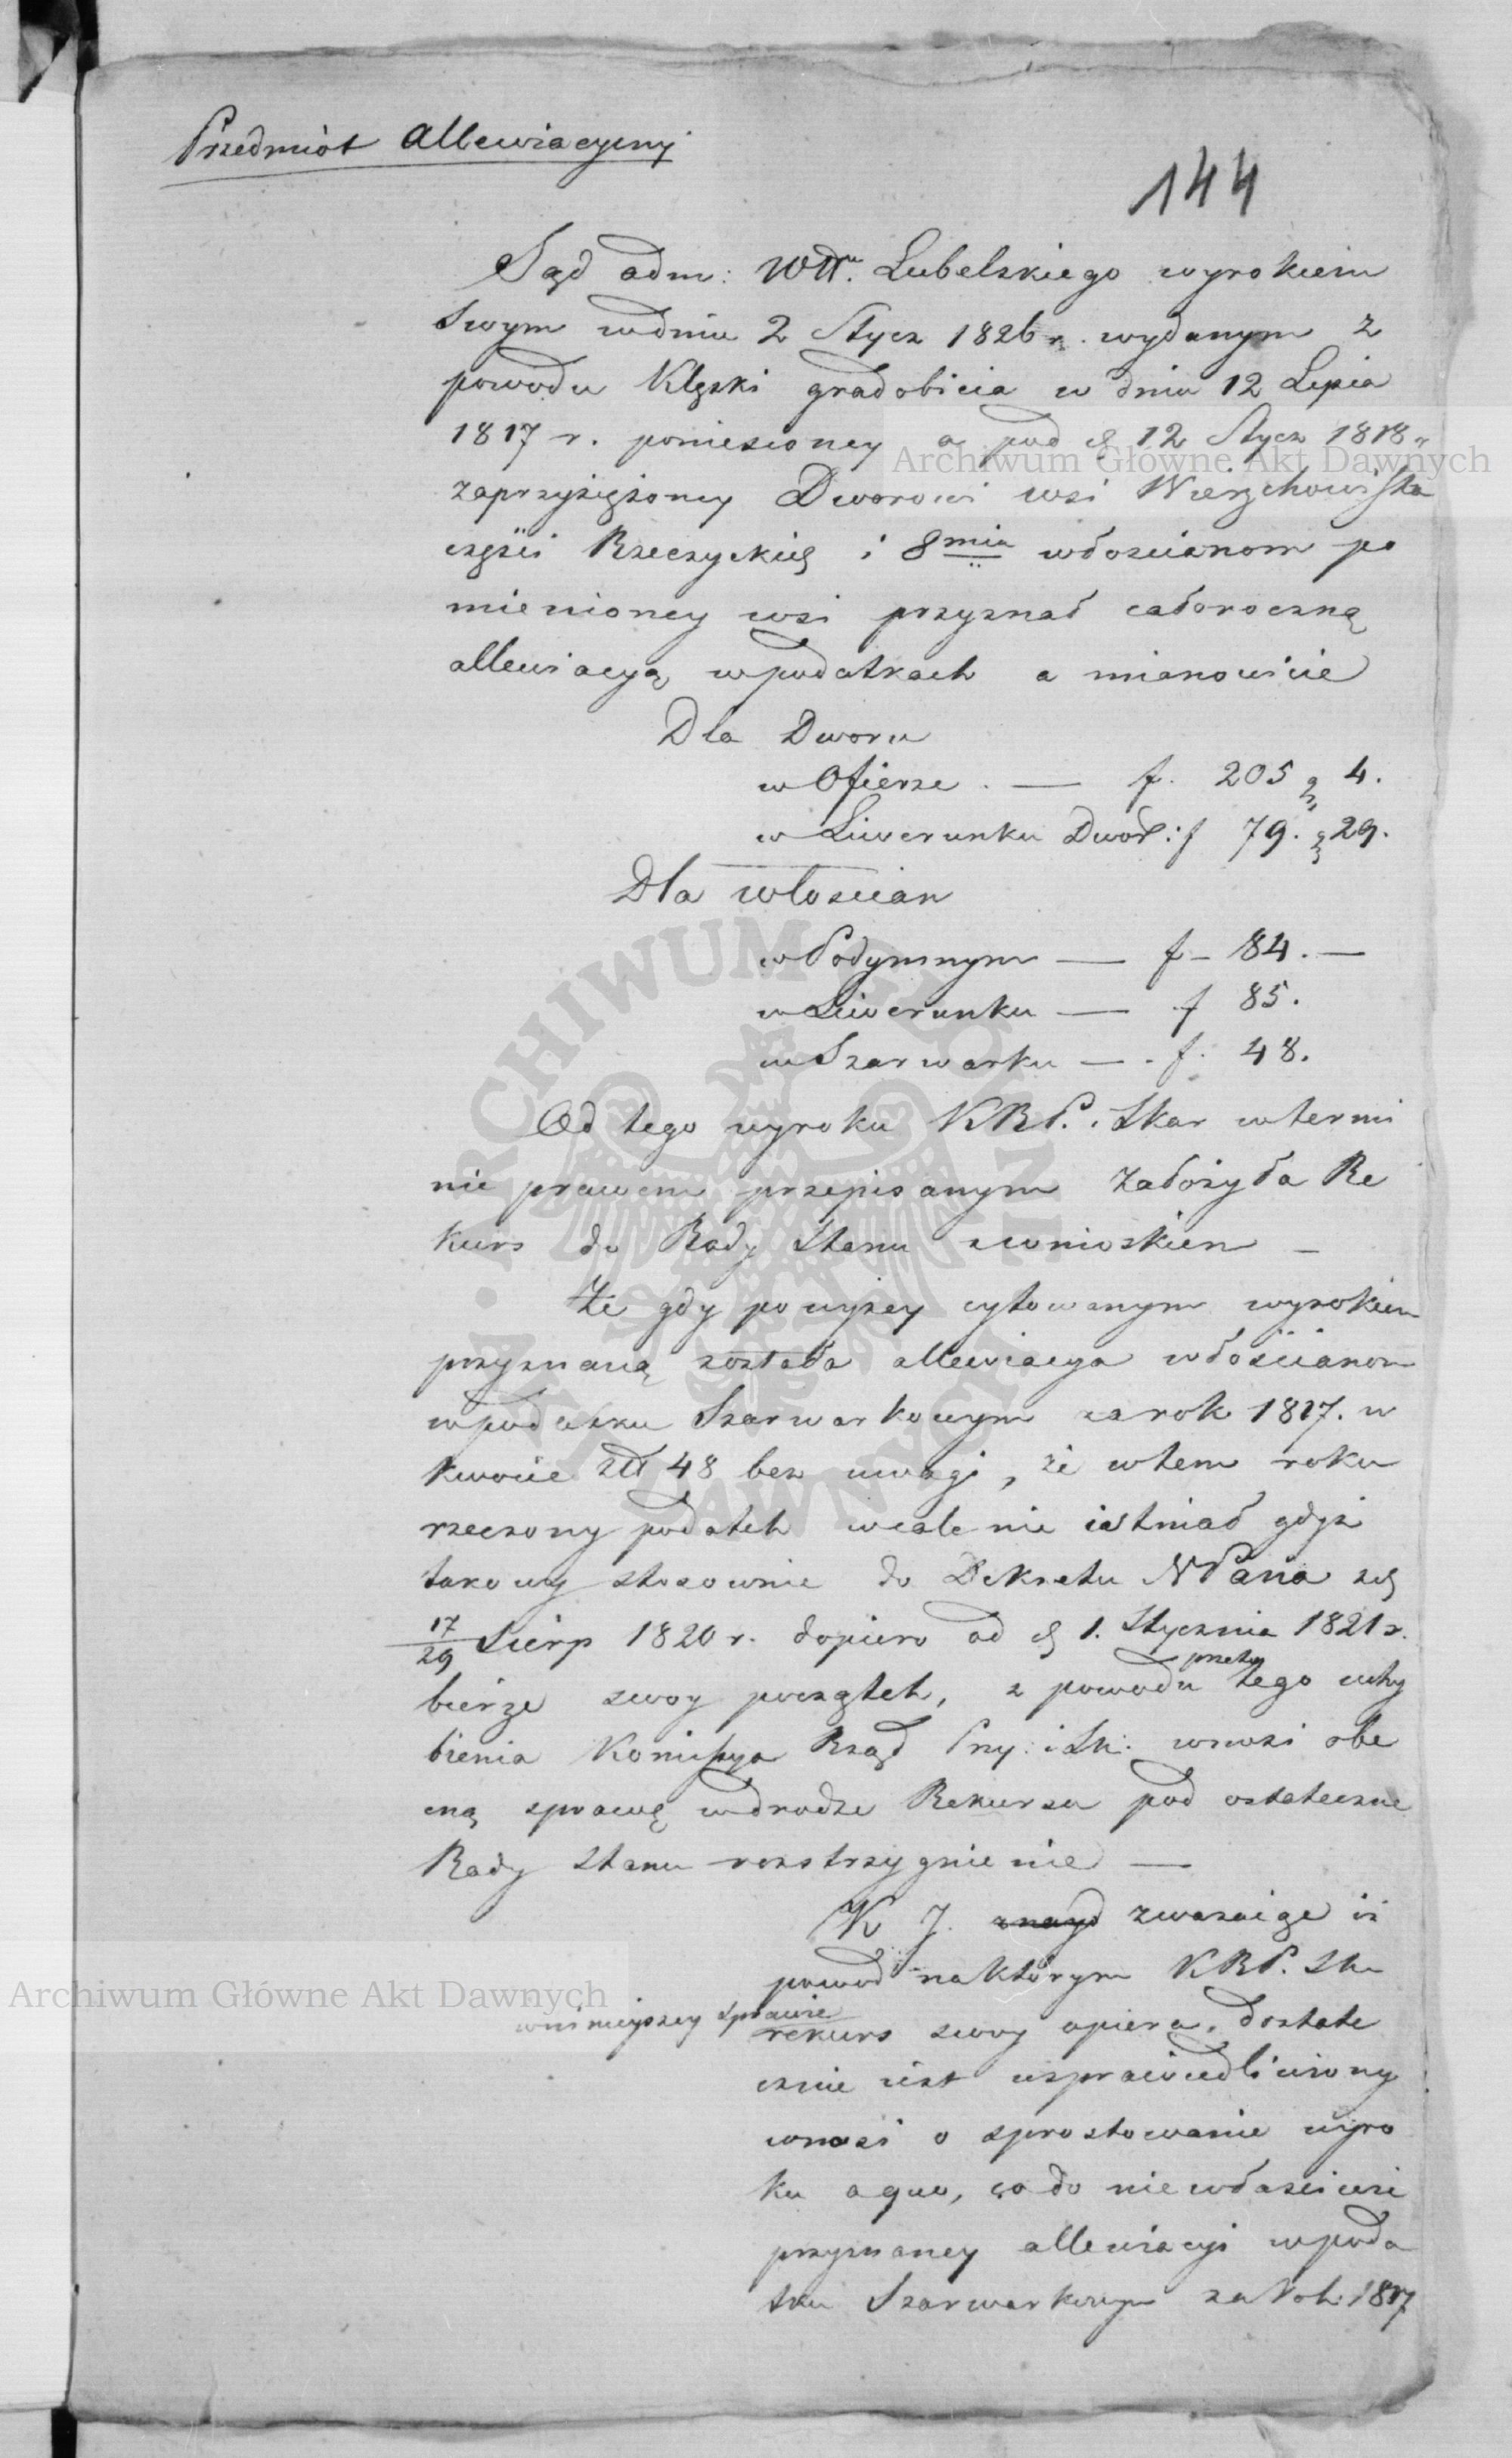 Przedmiot Allewiacyiny
144
Sąd adm: Wdt. Lubelskiego wyrokiem
swym wdniu 2 Stycz 1826 r. wydanym z
powodu Klęski gradobicia w dniu 12 Lipca
1817 r. poniesioney a pod d 12 Stycz 1818 r
zaprzysiężoney Dworowi wsi Wierzchowiska
części Rzeczyckiey i 8mia włoscianom po
mienioney wsi przyznał całoroczną
allewiacyą wpodatkach a mianowicie
Dla Dworu
w Ofierze . — f. 205 g 4.
w Liwerunku Dwor: f 79. g 29.
Dla włoscian
w Podymnym — f - 84. —
w Liwerunku — f 85.
w Szarwarku — . f. 48.
Od tego wyroku KRP. i Skar wtermi
nie prawem przepisanym założyła Re
kurs do Rady Stanu zwnioskiem —
Że gdy powyżey cytowanym wyrokiem
przyznaną została allewiacya włościanom
wpodatku Szarwarkowym zarok 1817. w
kwocie złt 48 bez uwagi, że wtem roku
rzeczony podatek wcale nie istniał gdyż
takowy stosownie do Dekretu NPana zd
17/29 Sierp 1820 r. dopiero od d 1. Stycznia 1821 r.
bierze swoy początek, z powodu przeto tego uchy
bienia Komissya Rząd Pny: i Sk: wnosi obe
cną sprawę wdrodze Rekursu pod ostateczne
Rady Stanu rozstrzygnienie —
K J. znayd zwazaiąc iż
powod naktórym KRP. Sk
wninieyszey sprawie
rekurs swoy opiera, dostate
cznie iest usprawiedliwiony
wnosi o sprostowanie wyro
ku aquo, co do niewłaściwie
przyznaney allewiacyi wpoda
tku Szarwarkowym za Rok 1817
Archiwum Główne Akt Dawnych
Archiwum Główne Akt Dawnych